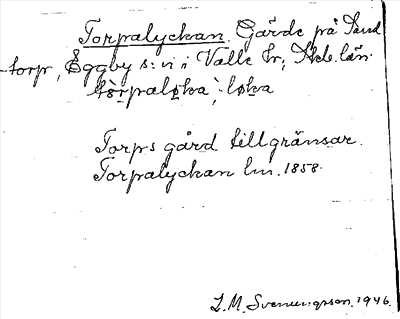 Torpalyckan. Gärde på Sand
-torp, Eggby s:n i Valle hr, Skb. län.
tòrpaløka, -løka
Torps gård tillgränsar.
Torpalyckan lm. 1858.
L.M. Svenungsson. 1946.